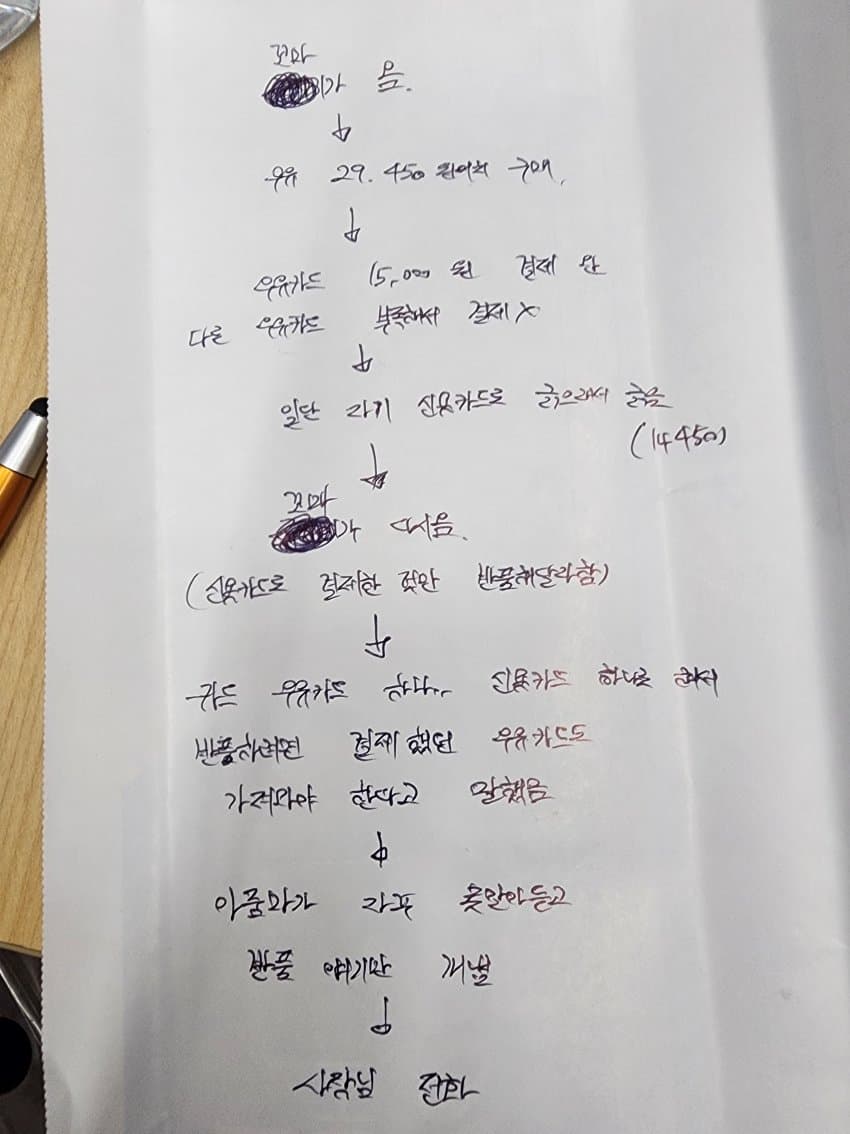 꼬마
이가 옴.
↓
우유 29.450 원어치 구매.
↓
우유카드 15,000 원 결제 완
다른 우유카드 부족해서 결제 X
↓
일단 자기 신용카드로 긁으래서 긁음
(14450)
↓
꼬마
가 다시옴.
(신용카드로 결제한 것만 반품해달라함)
↓
카드 우유카드 하나, 신용카드 하나로 해서
반품하려면 결제했던 우유카드도
가져와야 한다고 말했음
↓
아줌마가 자꾸 못알아듣고
반품 얘기만 꺼냄
↓
사장님 전화